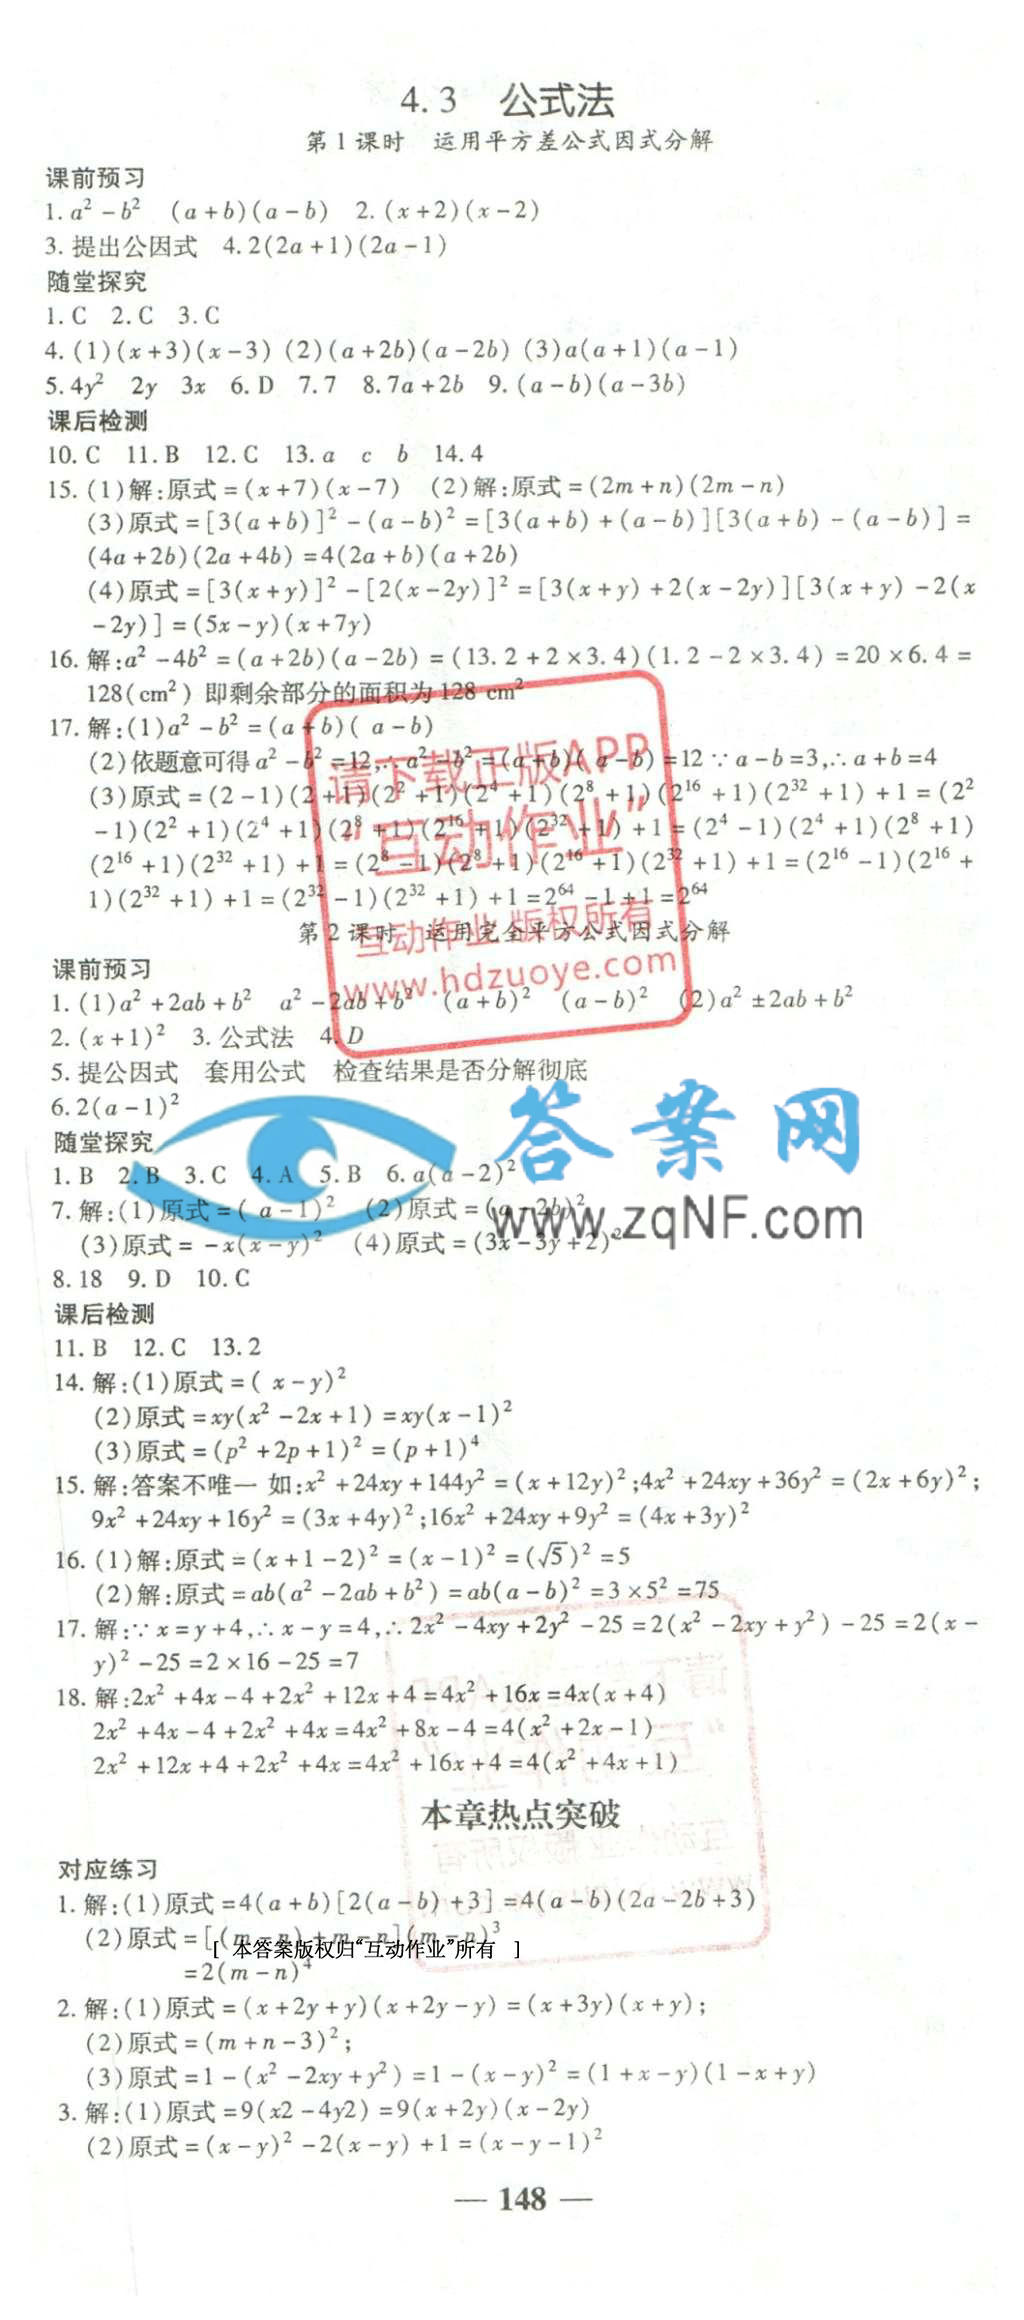 4.3 公式法
第1课时 运用平方差公式因式分解
课前预习
1. a² - b² (a+b)(a-b) 2. (x+2)(x-2)
3. 提出公因式 4. 2(2a+1)(2a-1)
随堂探究
1. C 2. C 3. C
4. (1)(x+3)(x-3) (2)(a+2b)(a-2b) (3)a(a+1)(a-1)
5. 4y² 2y 3x 6. D 7. 7 8. 7a+2b 9. (a-b)(a-3b)
课后检测
10. C 11. B 12. C 13. a c b 14. 4
15. (1)解:原式=(x+7)(x-7) (2)解:原式=(2m+n)(2m-n)
(3)原式=[3(a+b)]²-(a-b)²=[3(a+b)+(a-b)][3(a+b)-(a-b)]=
(4a+2b)(2a+4b)=4(2a+b)(a+2b)
(4)原式=[3(x+y)]²-[2(x-2y)]²=[3(x+y)+2(x-2y)][3(x+y)-2(x
-2y)]=(5x-y)(x+7y)
16. 解:a²-4b²=(a+2b)(a-2b)=(13.2+2×3.4)(1.2-2×3.4)=20×6.4=
128(cm²) 即剩余部分的面积为128 cm²
17. 解:(1)a²-b²=(a+b)( a-b)
(2)依题意可得a²-b²=12,∴a²-b²=(a+b)( a-b)=12∵a-b=3,∴a+b=4
(3)原式=(2-1)(2+1)(2²+1)(2⁴+1)(2⁸+1)(2¹⁶+1)(2³²+1)+1=(2²
-1)(2²+1)(2⁴+1)(2⁸+1)(2¹⁶+1)(2³²+1)+1=(2⁴-1)(2⁴+1)(2⁸+1)
(2¹⁶+1)(2³²+1)+1=(2⁸-1)(2⁸+1)(2¹⁶+1)(2³²+1)+1=(2¹⁶-1)(2¹⁶+
1)(2³²+1)+1=(2³²-1)(2³²+1)+1=2⁶⁴-1+1=2⁶⁴
请下载正版APP
“互动作业”
互动作业 版权所有
www.hdzuoye.com
第2课时 运用完全平方公式因式分解
课前预习
1. (1)a²+2ab+b² a²-2ab+b² (a+b)² (a-b)² (2)a²±2ab+b²
2. (x+1)² 3. 公式法 4. D
5. 提公因式 套用公式 检查结果是否分解彻底
6. 2(a-1)²
答案网
www.zqNF.com
随堂探究
1. B 2. B 3. C 4. A 5. B 6. a(a-2)²
7. 解:(1)原式=( a-1)² (2)原式=(a-2b)²
(3)原式=-x(x-y)² (4)原式=(3x-3y+2)²
8. 18 9. D 10. C
课后检测
11. B 12. C 13. 2
14. 解:(1)原式=( x-y)²
(2)原式=xy(x²-2x+1)=xy(x-1)²
(3)原式=(p²+2p+1)²=(p+1)⁴
15. 解:答案不唯一 如:x²+24xy+144y²=(x+12y)²;4x²+24xy+36y²=(2x+6y)²;
9x²+24xy+16y²=(3x+4y)²;16x²+24xy+9y²=(4x+3y)²
16. (1)解:原式=(x+1-2)²=(x-1)²=(√5)²=5
(2)解:原式=ab(a²-2ab+b²)=ab(a-b)²=3×5²=75
17. 解:∵x=y+4,∴x-y=4,∴2x²-4xy+2y²-25=2(x²-2xy+y²)-25=2(x-
y)²-25=2×16-25=7
18. 解:2x²+4x-4+2x²+12x+4=4x²+16x=4x(x+4)
2x²+4x-4+2x²+4x=4x²+8x-4=4(x²+2x-1)
2x²+12x+4+2x²+4x=4x²+16x+4=4(x²+4x+1)
本章热点突破
对应练习
1. 解:(1)原式=4(a+b)[2(a-b)+3]=4(a-b)(2a-2b+3)
(2)原式=[(m-n)+m-n](m-n)³
[ 本答案版权归“互动作业”所有 ]
=2(m-n)⁴
2. 解:(1)原式=(x+2y+y)(x+2y-y)=(x+3y)(x+y);
(2)原式=(m+n-3)²;
(3)原式=1-(x²-2xy+y²)=1-(x-y)²=(1+x-y)(1-x+y)
3. 解:(1)原式=9(x2-4y2)=9(x+2y)(x-2y)
(2)原式=(x-y)²-2(x-y)+1=(x-y-1)²
— 148 —